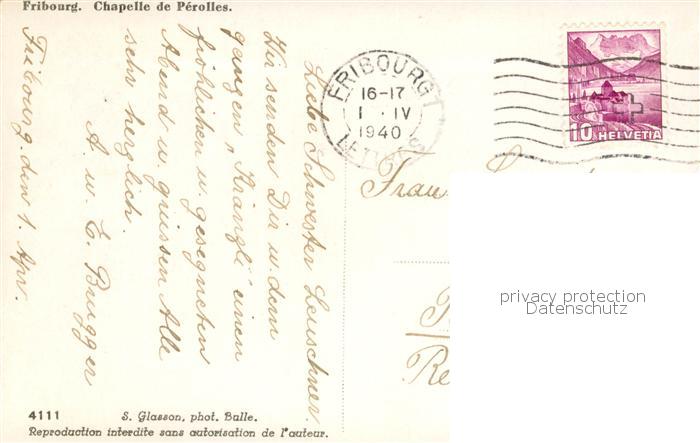 Fribourg. Chapelle de Pérolles.
Fribourg, den 1. Apr.
Liebe Schwester Leuschner.
Wir senden Dir u. dem
ganzen „Kränzli" einen
fröhlichen u. gesegneten
Abend u. grüssen Alle
sehr herzlich.
A. u. E. Brugger
FRIBOURG 1
16-17
1 · IV
1940
LETTRES
10 HELVETIA
Frau
privacy protection
Datenschutz
4111
S. Glasson, phot. Bulle.
Reproduction interdite sans autorisation de l'auteur.